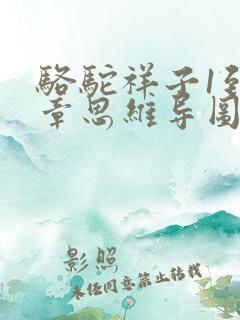 骆驼祥子1至
章思维导图
影照
未经同意禁止转载